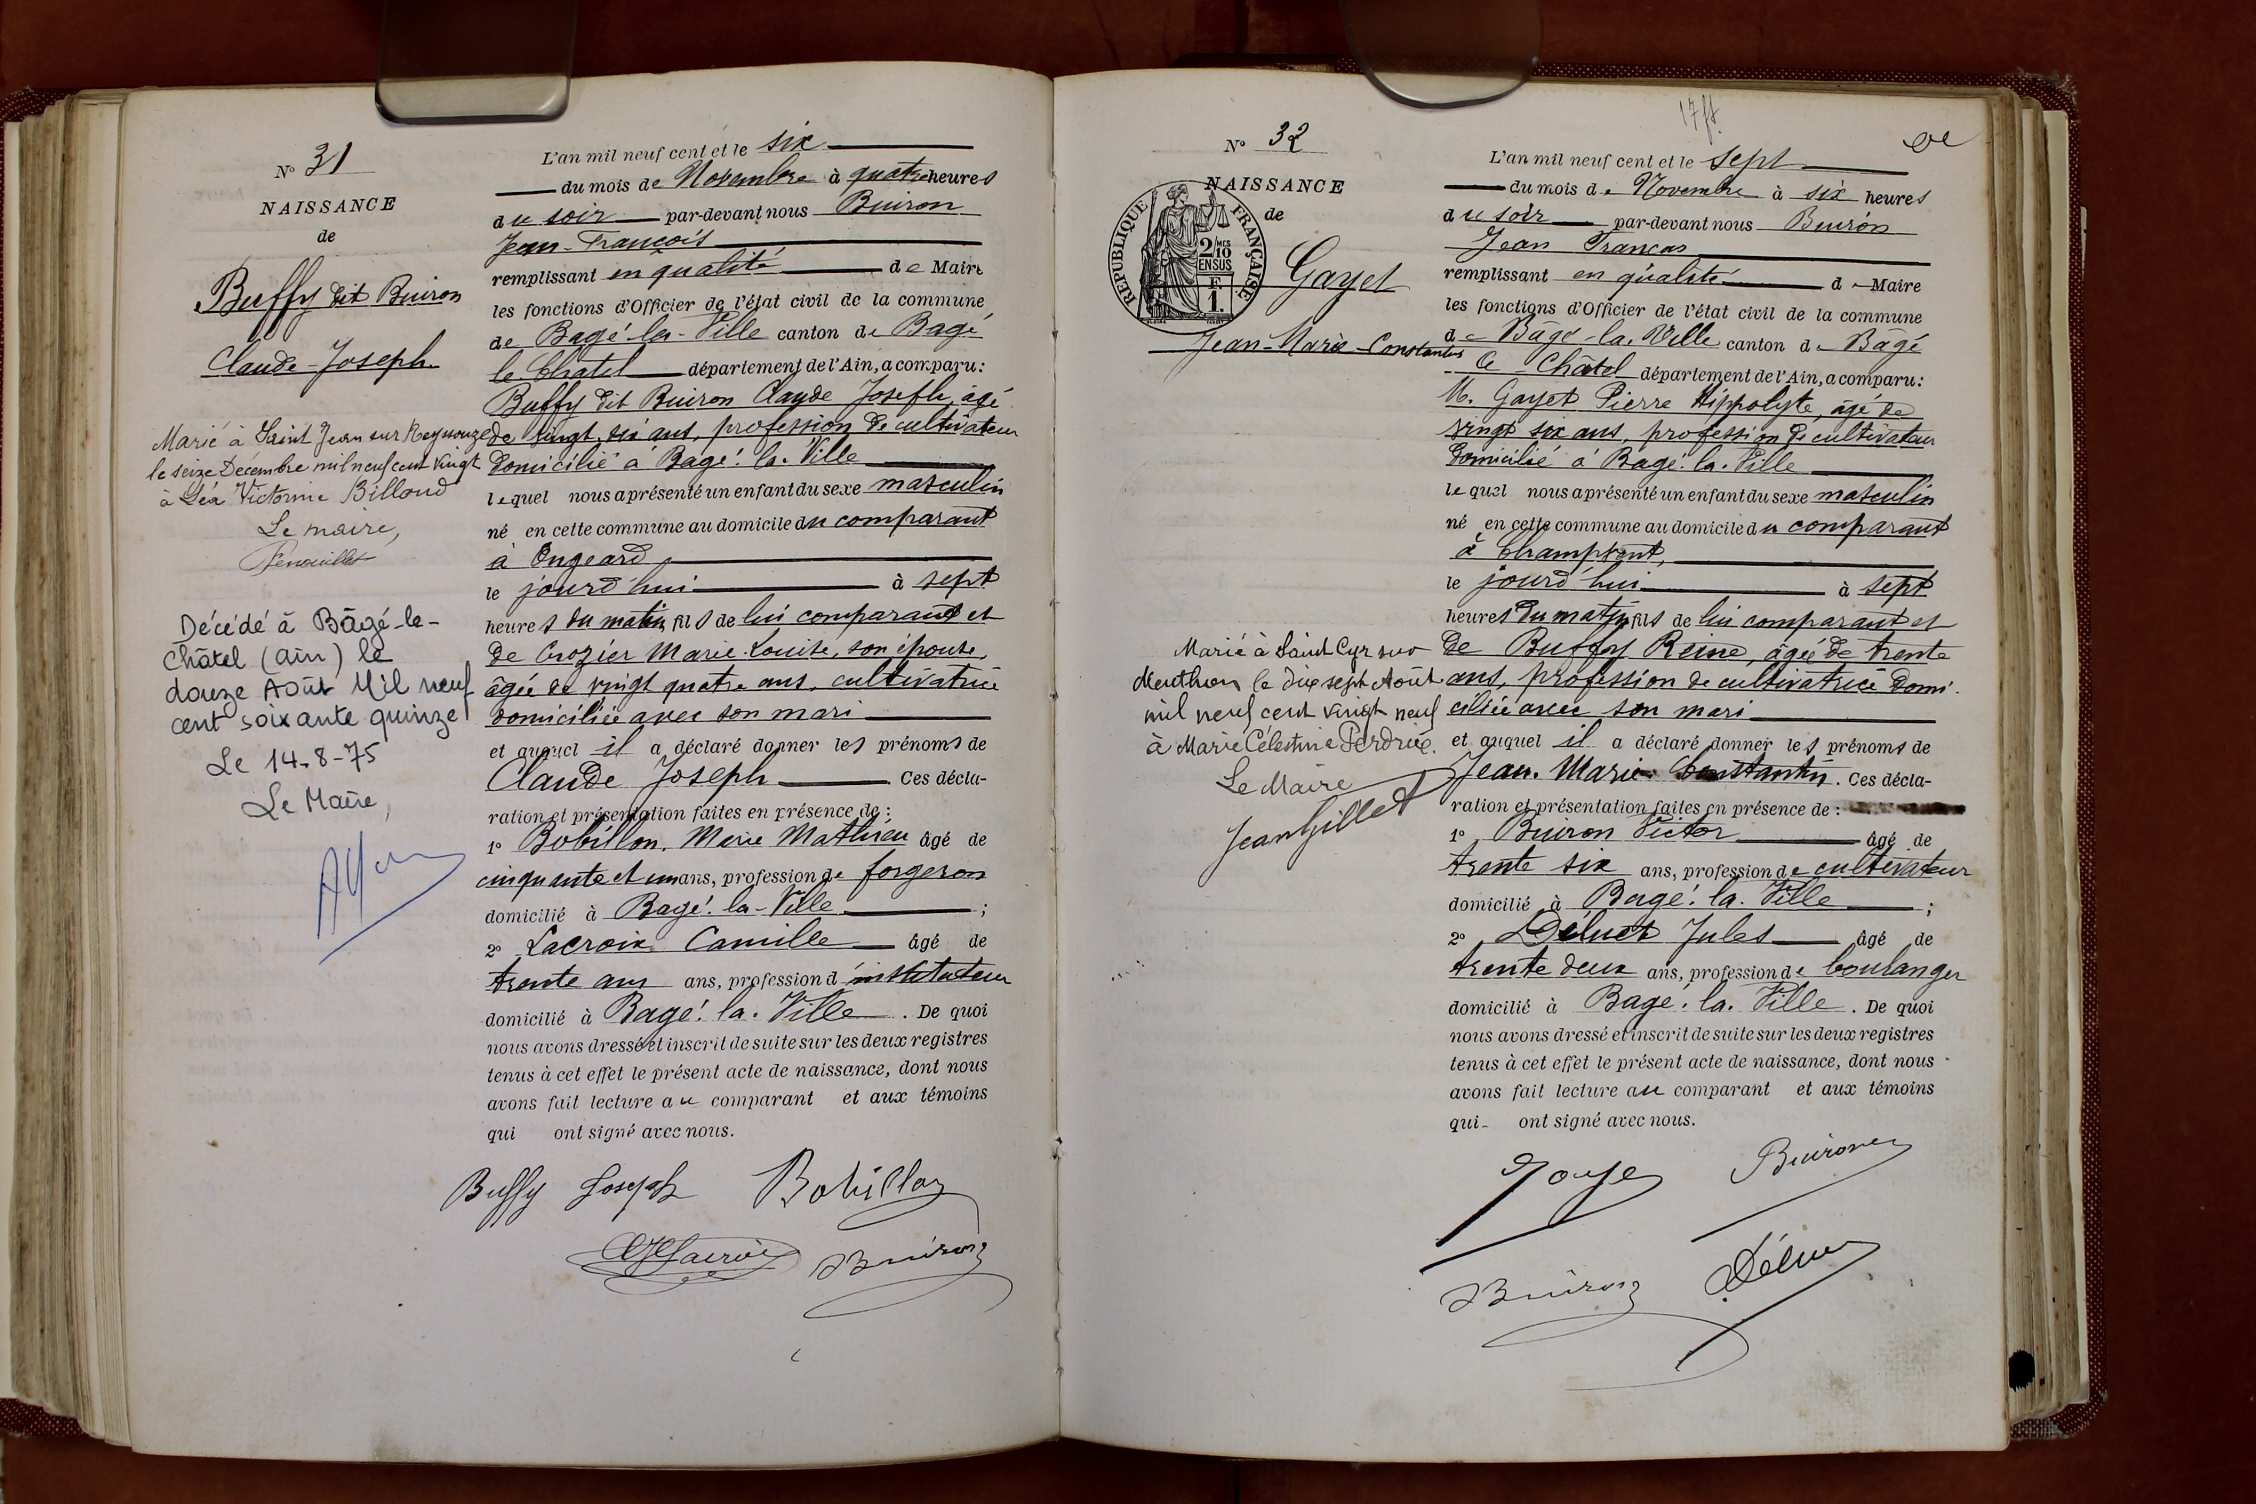 N° 31
NAISSANCE
de
Buffy dit Buiron
Claude-Joseph
Marié à Saint Jean sur Reyssouze
le seize Décembre mil neuf cent vingt
à Léa Victorine Billoud
Le maire,
Décédé à Bâgé-le-
Châtel (Ain) le
douze Août Mil neuf
cent soixante quinze
Le 14-8-75
Le Maire,
L'an mil neuf cent et le six
du mois de Novembre à quatre heures
du soir par-devant nous Buiron
Jean-François
remplissant en qualité de Maire
les fonctions d'Officier de l'état civil de la commune
de Bagé-la-Ville canton de Bagé
le Chatel département de l'Ain, a comparu:
Buffy dit Buiron Claude Joseph, âgé
de vingt six ans, profession de cultivateur
domicilié à Bagé-la-Ville
lequel nous a présenté un enfant du sexe masculin
né en cette commune au domicile du comparant
à Ongeard
le jourd'hui à sept
heures du matin, fils de lui comparant et
de Crozier Marie-Louise, son épouse,
âgée de vingt quatre ans, cultivatrice
domiciliée avec son mari
et auquel il a déclaré donner les prénoms de
Claude Joseph Ces décla-
ration et présentation faites en présence de:
1° Bobillon, Marie Mathieu âgé de
cinquante et un ans, profession de forgeron
domicilié à Bagé-la-Ville ;
2° Lacroix Camille âgé de
trente ans ans, profession d'instituteur
domicilié à Bagé-la-Ville . De quoi
nous avons dressé et inscrit de suite sur les deux registres
tenus à cet effet le présent acte de naissance, dont nous
avons fait lecture au comparant et aux témoins
qui ont signé avec nous.
Buffy Joseph Bobillon
Lacroix Buiron
17 ft.
N° 32
NAISSANCE
de
RÉPUBLIQUE FRANÇAISE
2/10 MES
EN SUS
F
1.
Gayet
Jean-Marie-Constantin
Marié à Saint Cyr sur
Menthon le dix sept Août
mil neuf cent vingt neuf
à Marie Célestine Perdrix.
Le Maire
Jean Gillet
L'an mil neuf cent et le sept
du mois de Novembre à six heures
du soir par-devant nous Buiron
Jean Francas
remplissant en qualité de Maire
les fonctions d'Officier de l'état civil de la commune
de Bâgé-la-Ville canton de Bâgé
le Châtel département de l'Ain, a comparu:
M. Gayet Pierre Hippolyte, âgé de
vingt six ans, profession de cultivateur
domicilié à Bagé-la-Ville
lequel nous a présenté un enfant du sexe masculin
né en cette commune au domicile du comparant
à Champvent,
le jourd'hui à sept
heures du matin, fils de lui comparant et
de Buffy Reine, âgée de trente
ans, profession de cultivatrice domi-
ciliée avec son mari
et auquel il a déclaré donner les prénoms de
Jean-Marie Constantin. Ces décla-
ration et présentation faites en présence de:
1° Buiron Victor âgé de
trente six ans, profession de cultivateur
domicilié à Bagé-la-Ville ;
2° Déluet Jules âgé de
trente deux ans, profession de boulanger
domicilié à Bagé-la-Ville . De quoi
nous avons dressé et inscrit de suite sur les deux registres
tenus à cet effet le présent acte de naissance, dont nous
avons fait lecture au comparant et aux témoins
qui ont signé avec nous.
Buiron
Buiron